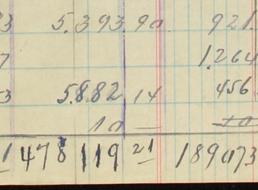 3 5.393 90 921.
7 1.264
3 5.882 14 456
10 — 10
1 478 119 21 189 073